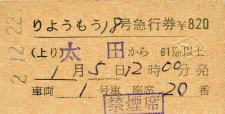 りようもう18号急行券 ¥820
(上り) 太田から 61Km以上
1月5日12時00分発
車両 1号車 座席 20番
禁煙席
2.12.22